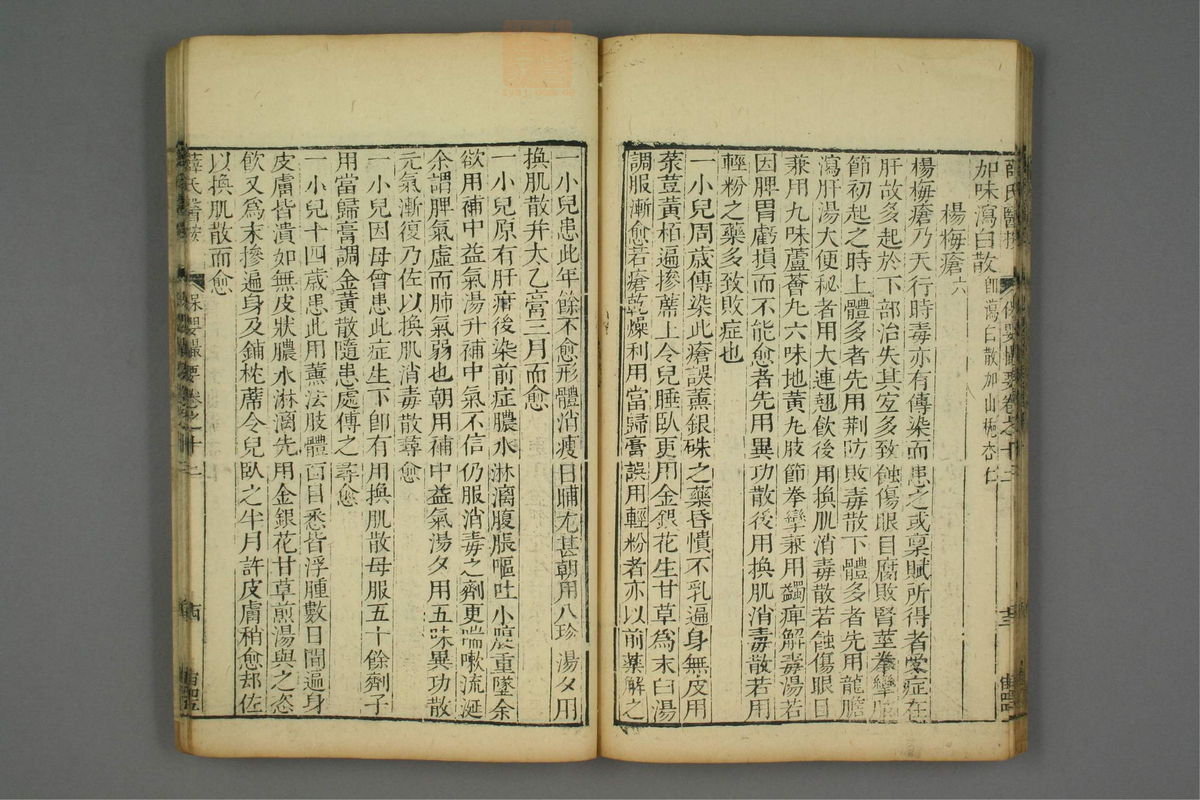 薛氏醫按 保嬰撮要卷之十二
加味瀉白散即瀉白散加山梔杏仁
楊梅瘡六
楊梅瘡乃天行時毒亦有傳染而患之或稟賦所得者受症在
肝故多起於下部治失其宜多致蝕傷眼目腐敗腎莖拳攣
節初起之時上體多者先用荆防敗毒散下體多者先用龍膽
瀉肝湯大便秘者用大連翹飲後用換肌消毒散若蝕傷眼目
兼用九味蘆薈丸六味地黃丸肢節拳攣兼用蠲痺解毒湯若
因脾胃虧損而不能愈者先用異功散後用換肌消毒散若用
輕粉之藥多致敗症也
一小兒周歲傳染此瘡誤薰銀硃之藥昏憒不乳遍身無皮用
菉荳黃栢遍摻蓆上令兒睡臥更用金銀花生甘草爲末白湯
調服漸愈若瘡乾燥利用當歸膏誤用輕粉者亦以前藥解之
一小兒患此年餘不愈形體消瘦日晡尤甚朝用八珍湯夕用
換肌散并太乙膏三月而愈
一小兒原有肝疳後染前症膿水淋漓腹脹嘔吐小腹重墜余
欲用補中益氣湯升補中氣不信仍服消毒之劑更喘嗽流涎
余謂脾氣虛而肺氣弱也朝用補中益氣湯夕用五味異功散
元氣漸復乃佐以換肌消毒散尋愈
一小兒因母曾患此症生下卽有用換肌散母服五十餘劑子
用當歸膏調金黃散隨患處傅之尋愈
一小兒十四歲患此用薰法肢體面目悉皆浮腫數日間遍身
皮膚皆潰如無皮狀膿水淋漓先用金銀花甘草煎湯與之恣
飲又爲末摻遍身及鋪枕蓆令兒臥之半月許皮膚稍愈却佐
以換肌散而愈
薛氏醫按 保嬰撮要卷之十二